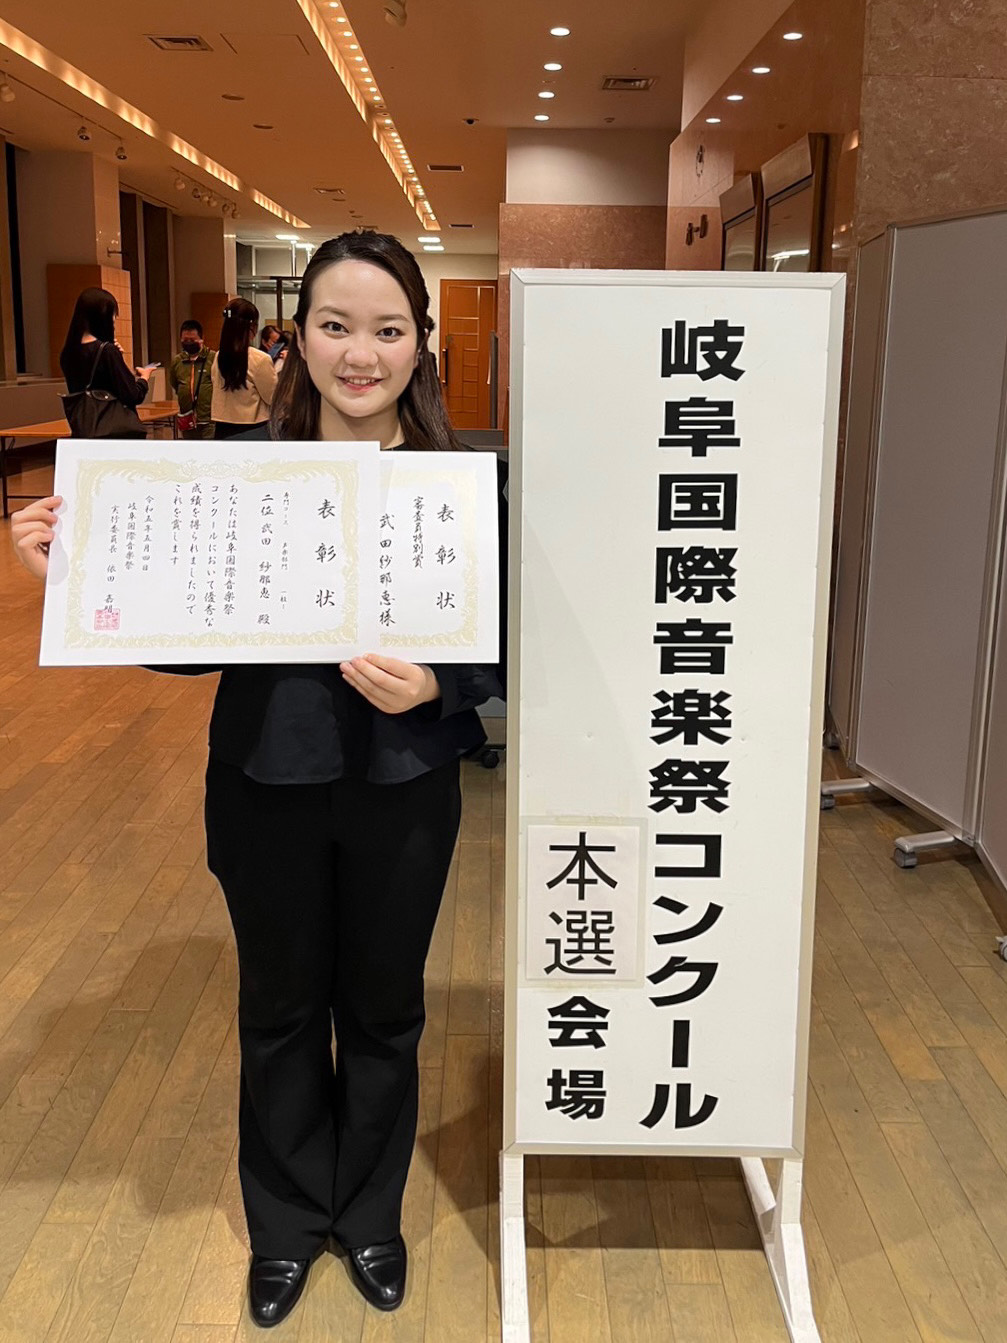 表彰状
専門コース 声楽部門 一般
二位 武田 紗耶恵 殿
あなたは岐阜国際音楽祭
コンクールにおいて優秀な
成績を得られましたので
これを賞します
令和五年五月四日
岐阜国際音楽祭
実行委員長 依田 嘉明
表彰状
審査員特別賞
武田紗耶恵様
岐阜国際音楽祭コンクール
本選
会場